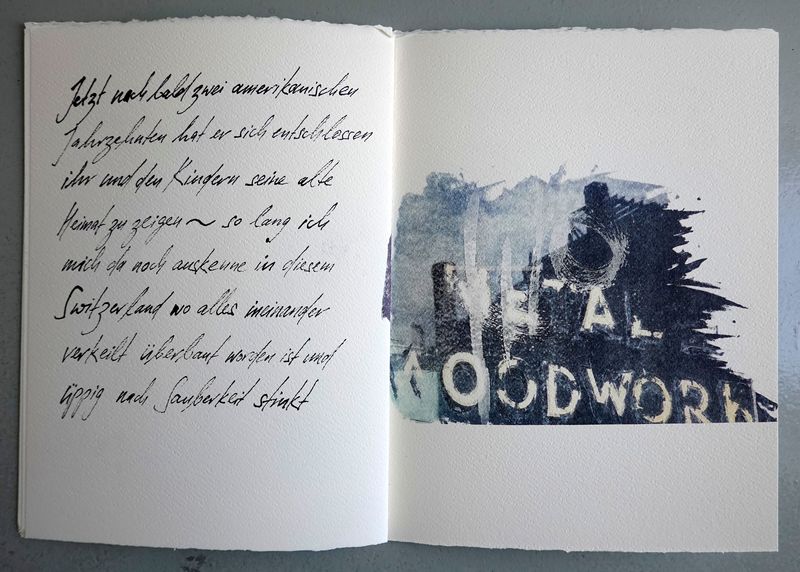 Jetzt nach bald zwei amerikanischen
Jahrzehnten hat er sich entschlossen
ihr und den Kindern seine alte
Heimat zu zeigen ~ so lang ich
mich da noch auskenne in diesem
Switzerland wo alles ineinander
verkeilt überbaut worden ist und
üppig nach Sauberkeit stinkt
METAL
WOODWORK